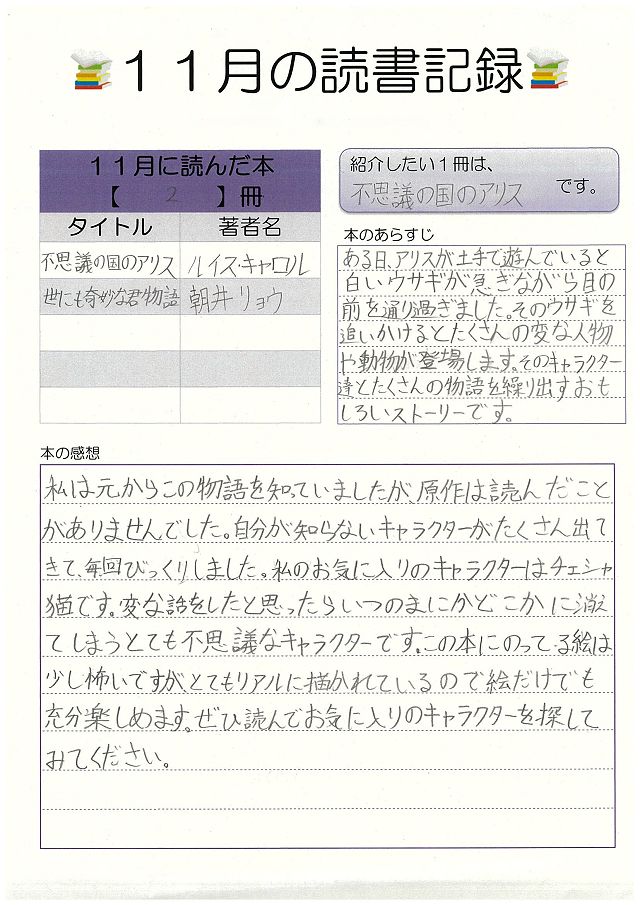 11月の読書記録
11月に読んだ本
【 2 】冊
タイトル 著者名
不思議の国のアリス ルイス・キャロル
世にも奇妙な君物語 朝井リョウ
紹介したい1冊は、
不思議の国のアリス です。
本のあらすじ
ある日、アリスが土手で遊んでいると
白いウサギが急ぎながら目の
前を通り過ぎました。そのウサギを
追いかけるとたくさんの変な人物
や動物が登場します。そのキャラクター
達とたくさんの物語を繰り出すおも
しろいストーリーです。
本の感想
私は元からこの物語を知っていましたが、原作は読んだこと
がありませんでした。自分が知らないキャラクターがたくさん出て
きて、毎回びっくりしました。私のお気に入りのキャラクターはチェシャ
猫です。変な話をしたと思ったらいつのまにかどこかに消え
てしまうとても不思議なキャラクターです。この本にのってる絵は
少し怖いですが、とてもリアルに描かれているので絵だけでも
充分楽しめます。ぜひ読んでお気に入りのキャラクターを探して
みてください。